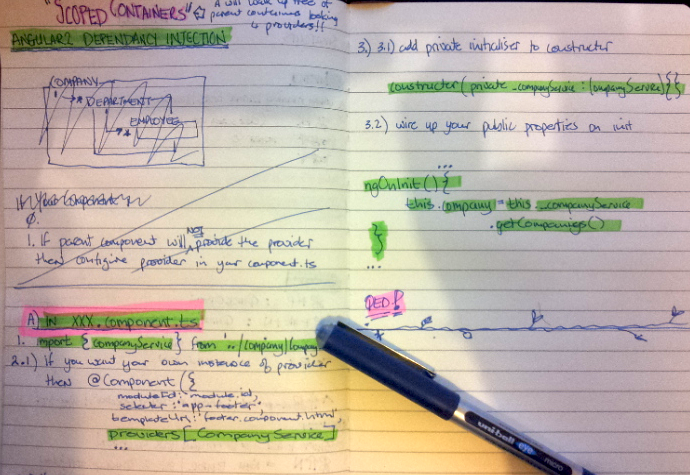 "SCOPED CONTAINERS"
A will look up tree of
parent containers looking
providers!!
ANGULAR2 DEPENDANCY INJECTION
COMPANY
DEPARTMENT
EMPLOYEE
If Your Component
0.
1. If parent component will NOT provide the provider
then configure provider in your component.ts
A) IN XXX.component.ts
1. import {companyService} from '../company/company
2.1) If you want your own instance of provider
then @Component({
moduleId: module.id,
selector: 'app-footer',
templateUrl: 'footer.component.html',
providers [_CompanyService]
...
3.) 3.1) add private initialiser to constructor
constructor(private _companyService: CompanyService){}
3.2) wire up your public properties on init
...
ngOnInit(){
this.company = this._companyService
.getCompanies()
}
...
QED!
uni-ball eye
micro